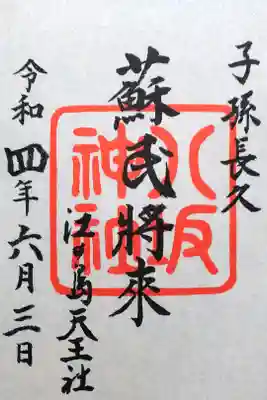 子孫長久
蘇民將來
八坂神社
江の島天王社
令和四年六月三日